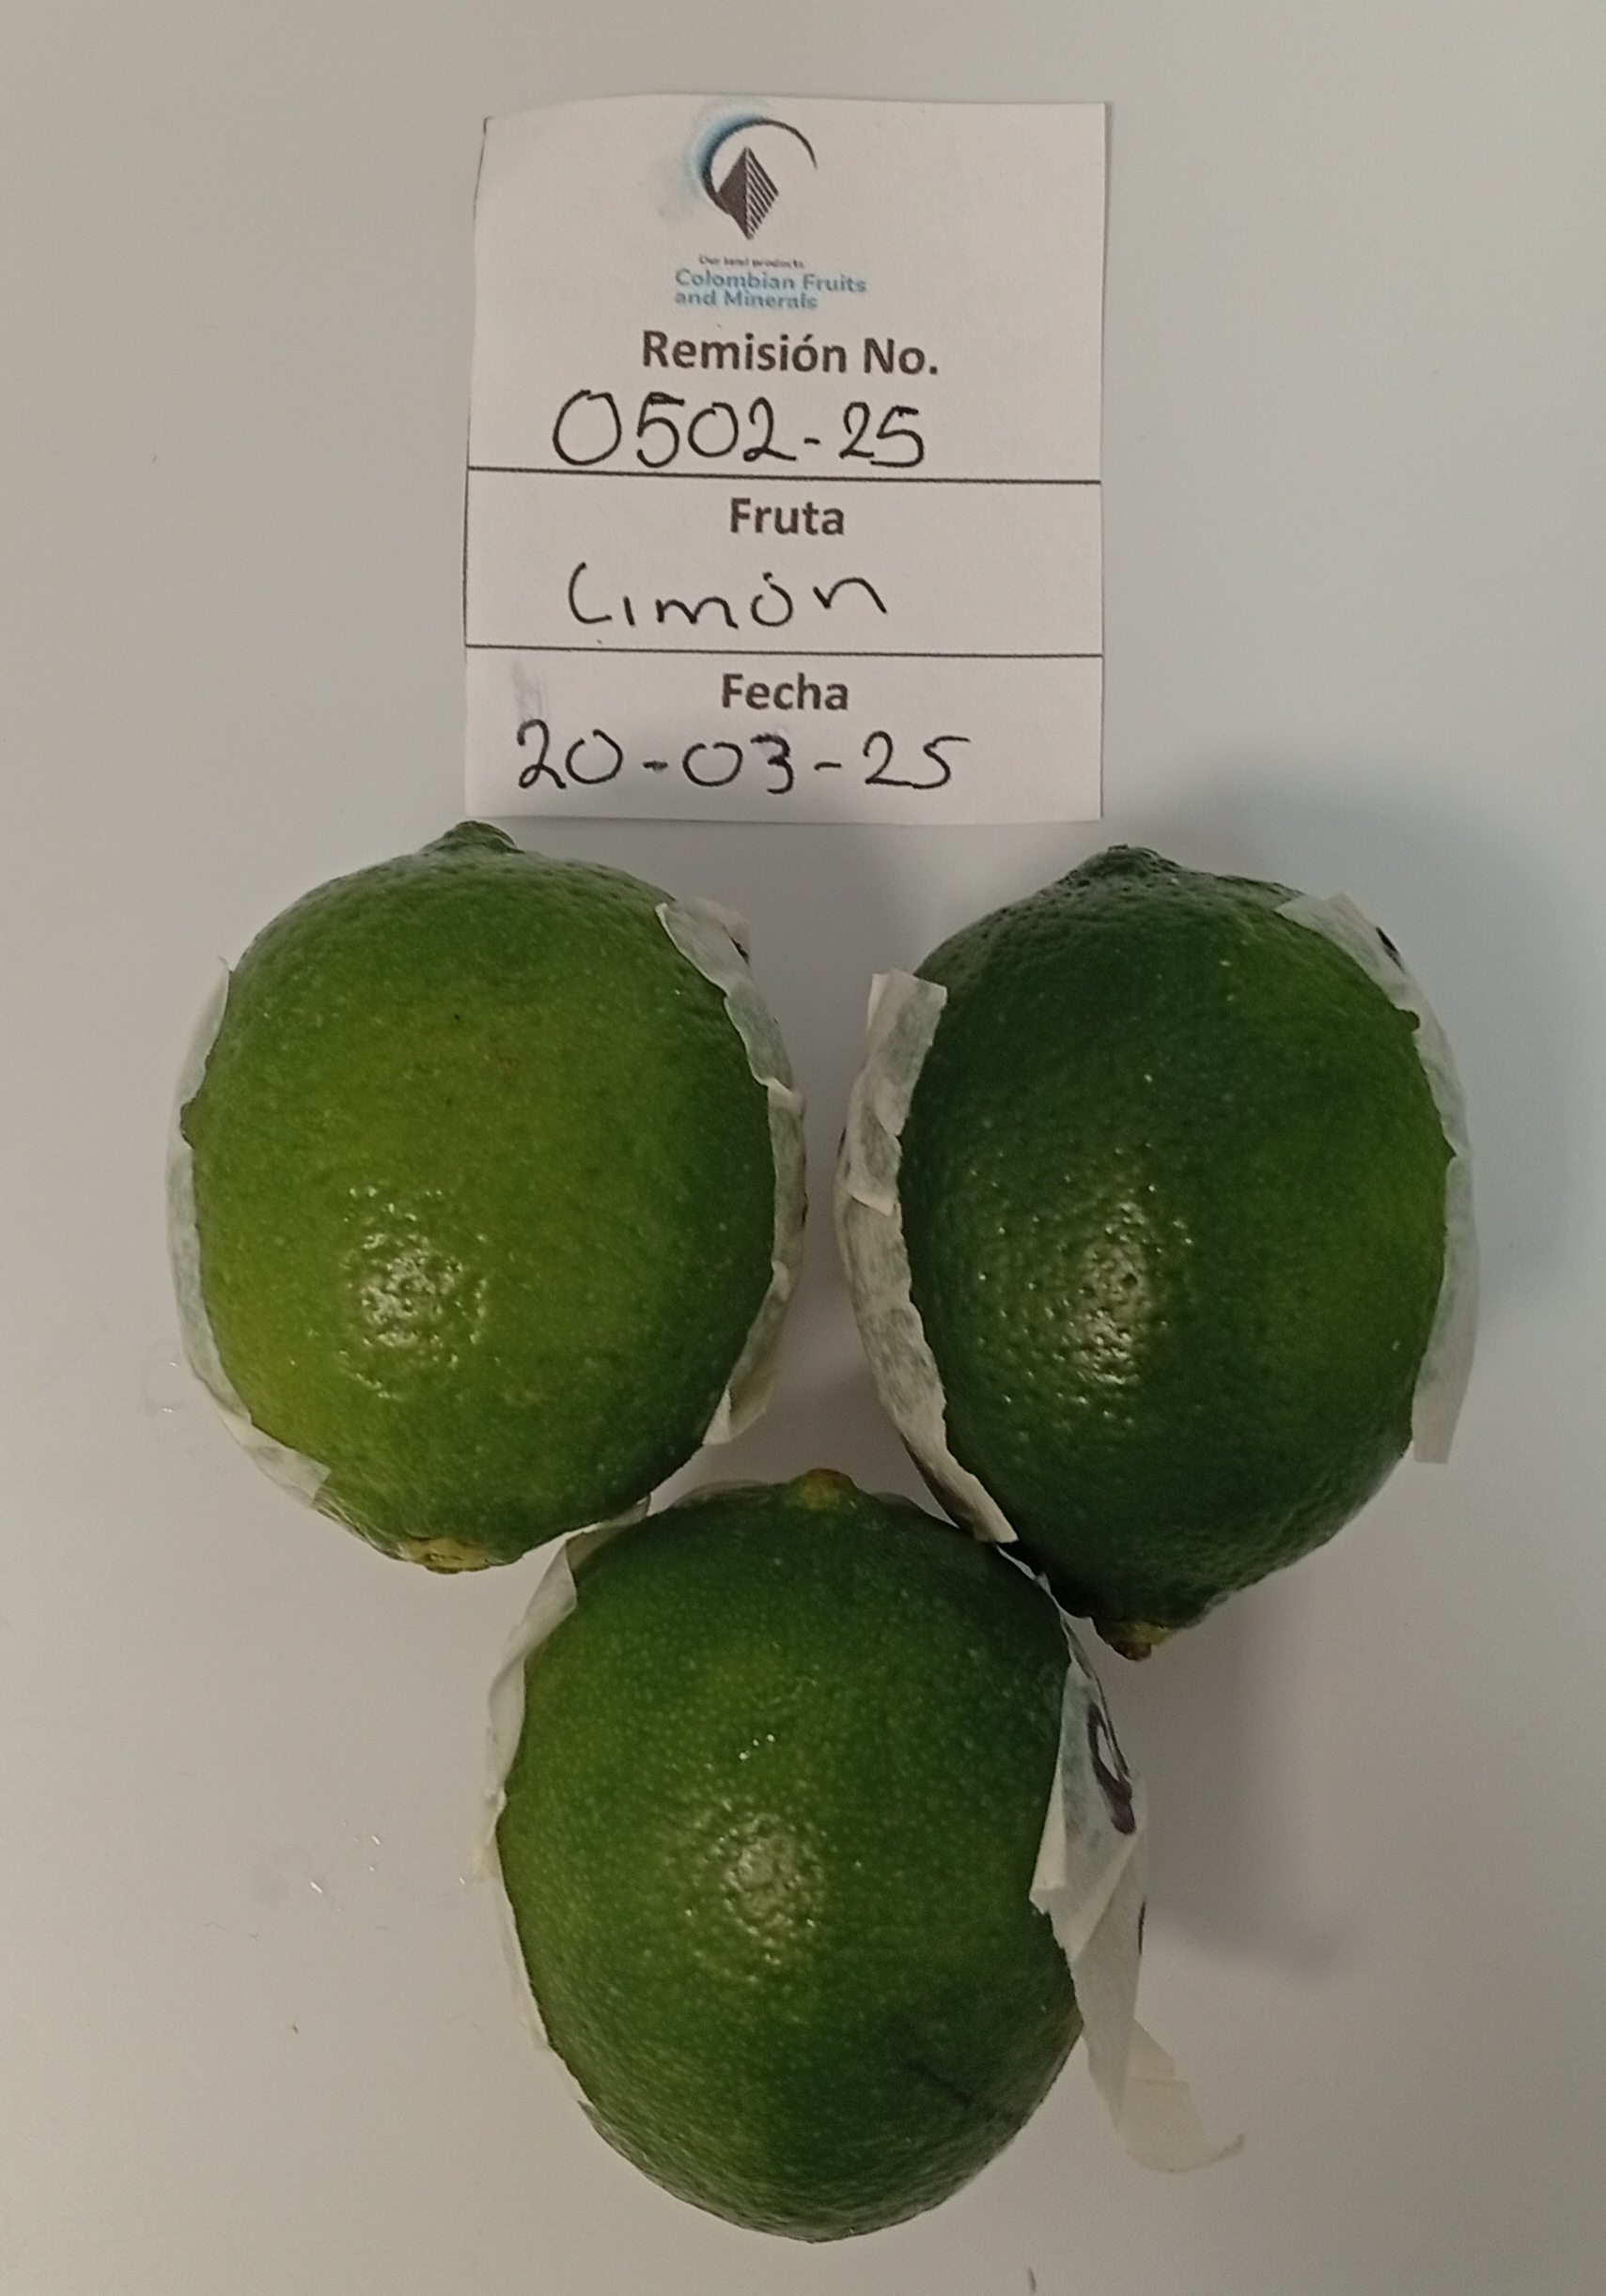 Our land products
Colombian Fruits
and Minerals
Remisión No.
0502-25
Fruta
Limón
Fecha
20-03-25